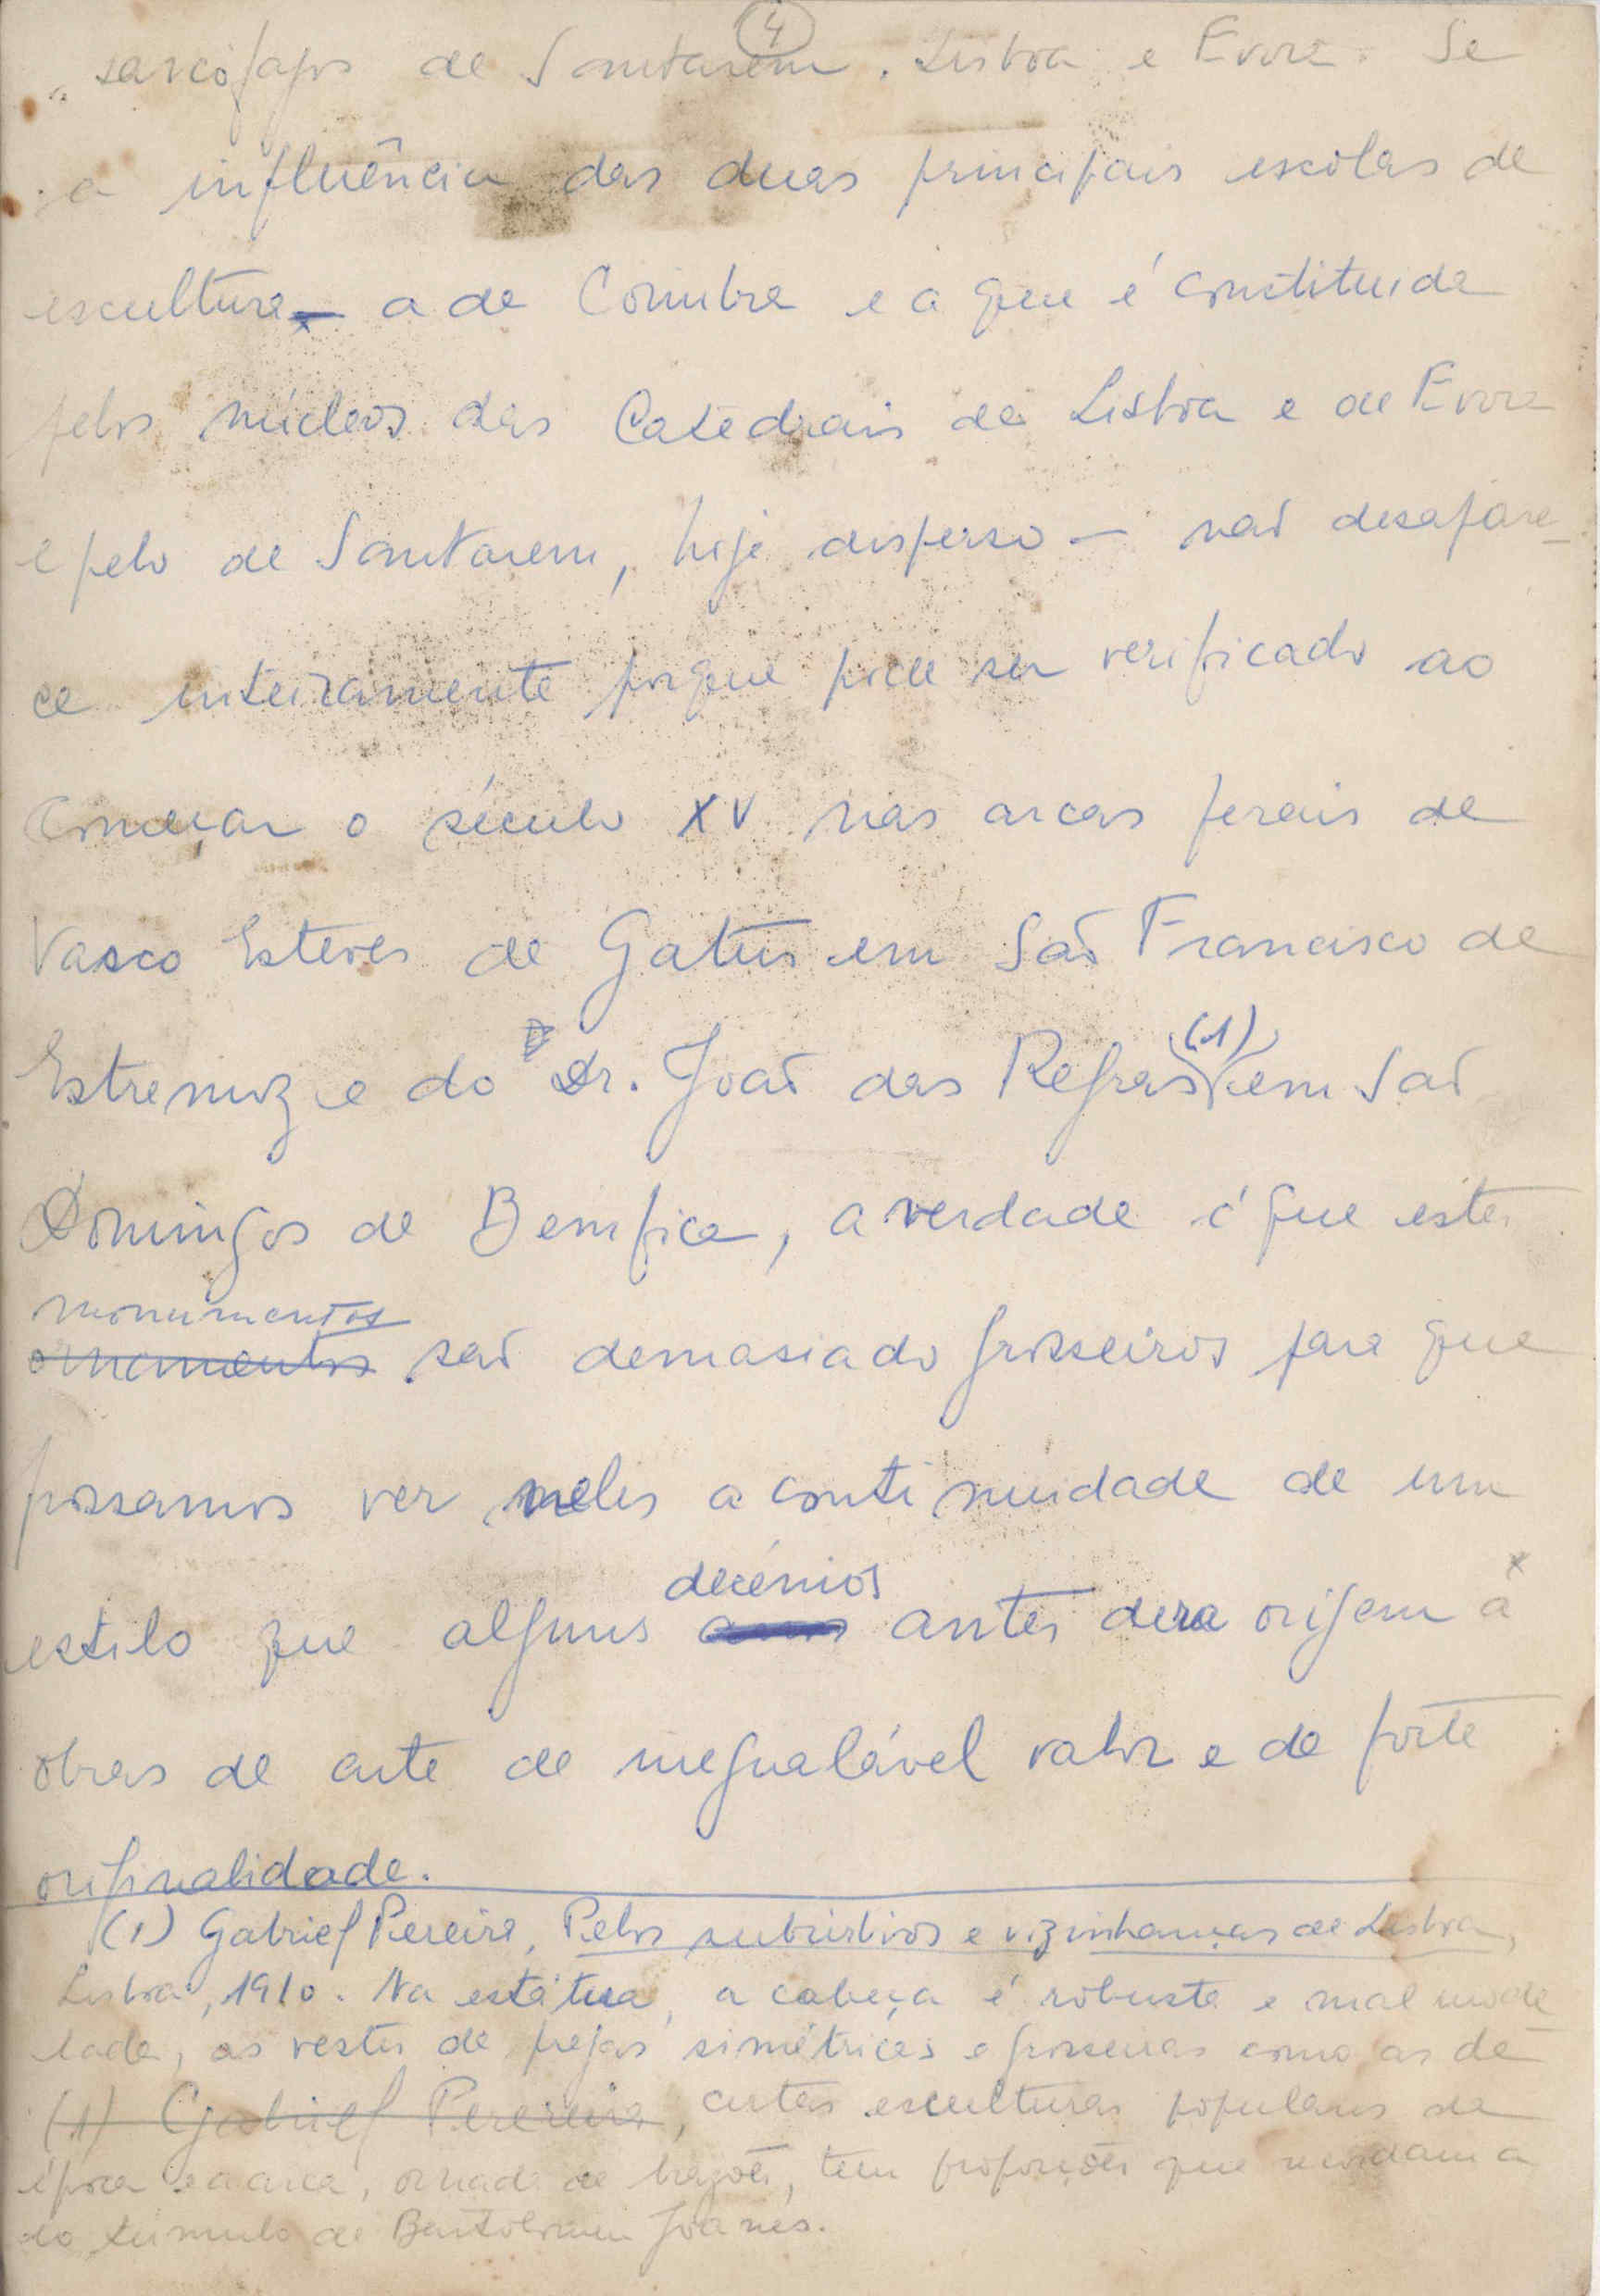 4
sarcófagos de Santarem, Lisboa e Evora. Se
a influência das duas principais escolas de
escultura — a de Coimbra e a que é constituida
pelos núcleos das Catedrais de Lisboa e de Evora
e pelo de Santarem, hoje disperso — não desapare-
ce inteiramente porque pode ser verificado ao
começar o século XV nas arcas ferais de
Vasco Esteves de Gatus em São Francisco de
Estremoz e do Dr. João das Regras (1) em São
Domingos de Bemfica, a verdade é que estes
monumentos
ornamentos são demasiado grosseiros para que
possamos ver neles a continuidade de um
estilo que alguns decénios antes dera origem a
obras de arte de inegualável valor e de forte
originalidade.
(1) Gabriel Pereira, Pelos suburbios e vizinhanças de Lisboa,
Lisboa, 1910. Na estátua, a cabeça é robusta e mal mode
lada, as vestes de pregas simétricas e grosseiras como as de
(1) Gabriel Perereira, certas esculturas populares da
época e a arca, ornada de brazões, tem proporções que recordam a
do túmulo de Bartolomeu Joanes.